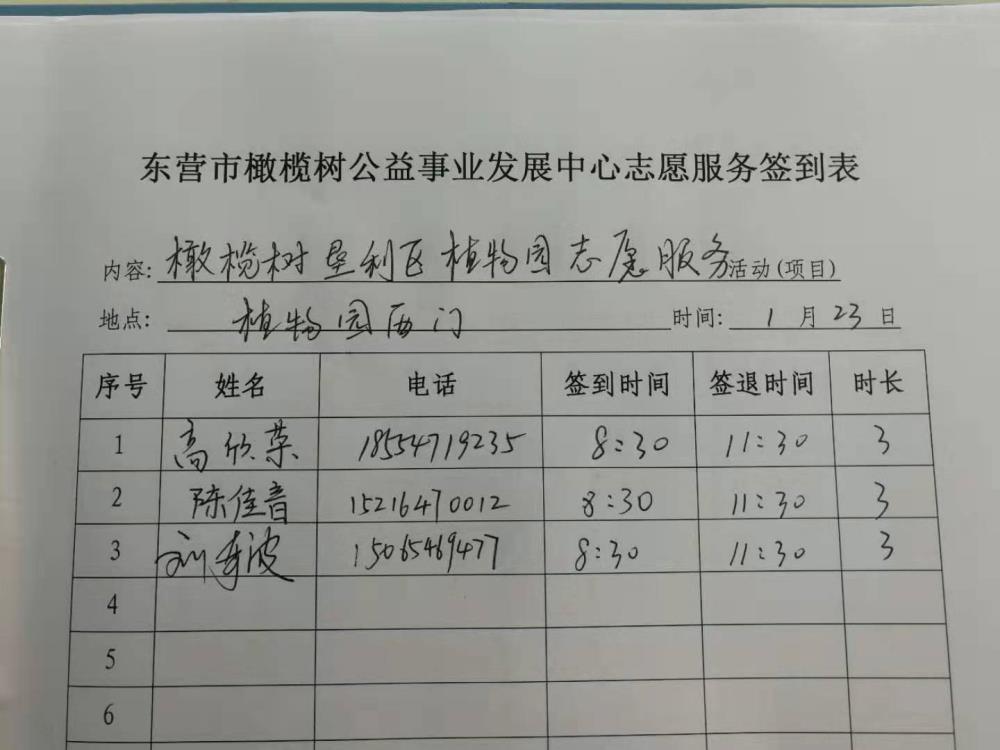 东营市橄榄树公益事业发展中心志愿服务签到表
内容: 橄榄树垦利区植物园志愿服务活动(项目)
地点: 植物园西门 时间: 1月23日
序号 姓名 电话 签到时间 签退时间 时长
1 高欣荣 18554719235 8:30 11:30 3
2 陈佳音 15216470012 8:30 11:30 3
3 刘波 15065469477 8:30 11:30 3
4
5
6